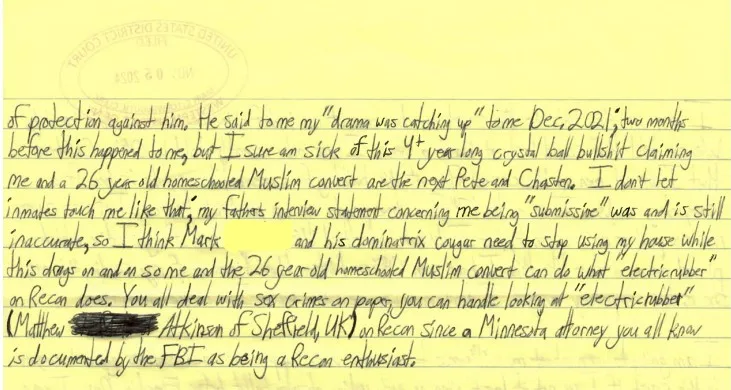 UNITED STATES DISTRICT COURT
FILED
05 2024
of protection against him. He said to me my "drama was catching up" to me Dec, 2021; two months
before this happened to me, but I sure am sick of this 4+ year long crystal ball bullshit claiming
me and a 26 year old homeschooled Muslim convert are the next Pete and Chasten. I don't let
inmates touch me like that; my father's interview statement concerning me being "submissive" was and is still
inaccurate, so I think Mark and his dominatrix cougar need to stop using my house while
this drags on and on so me and the 26 year old homeschooled Muslim convert can do what "electricrubber"
on Recon does. You all deal with sex crimes on paper, you can handle looking at "electricrubber"
(Matthew Atkinson of Sheffield, UK) on Recon since a Minnesota attorney you all know
is documented by the FBI as being a Recon enthusiast.